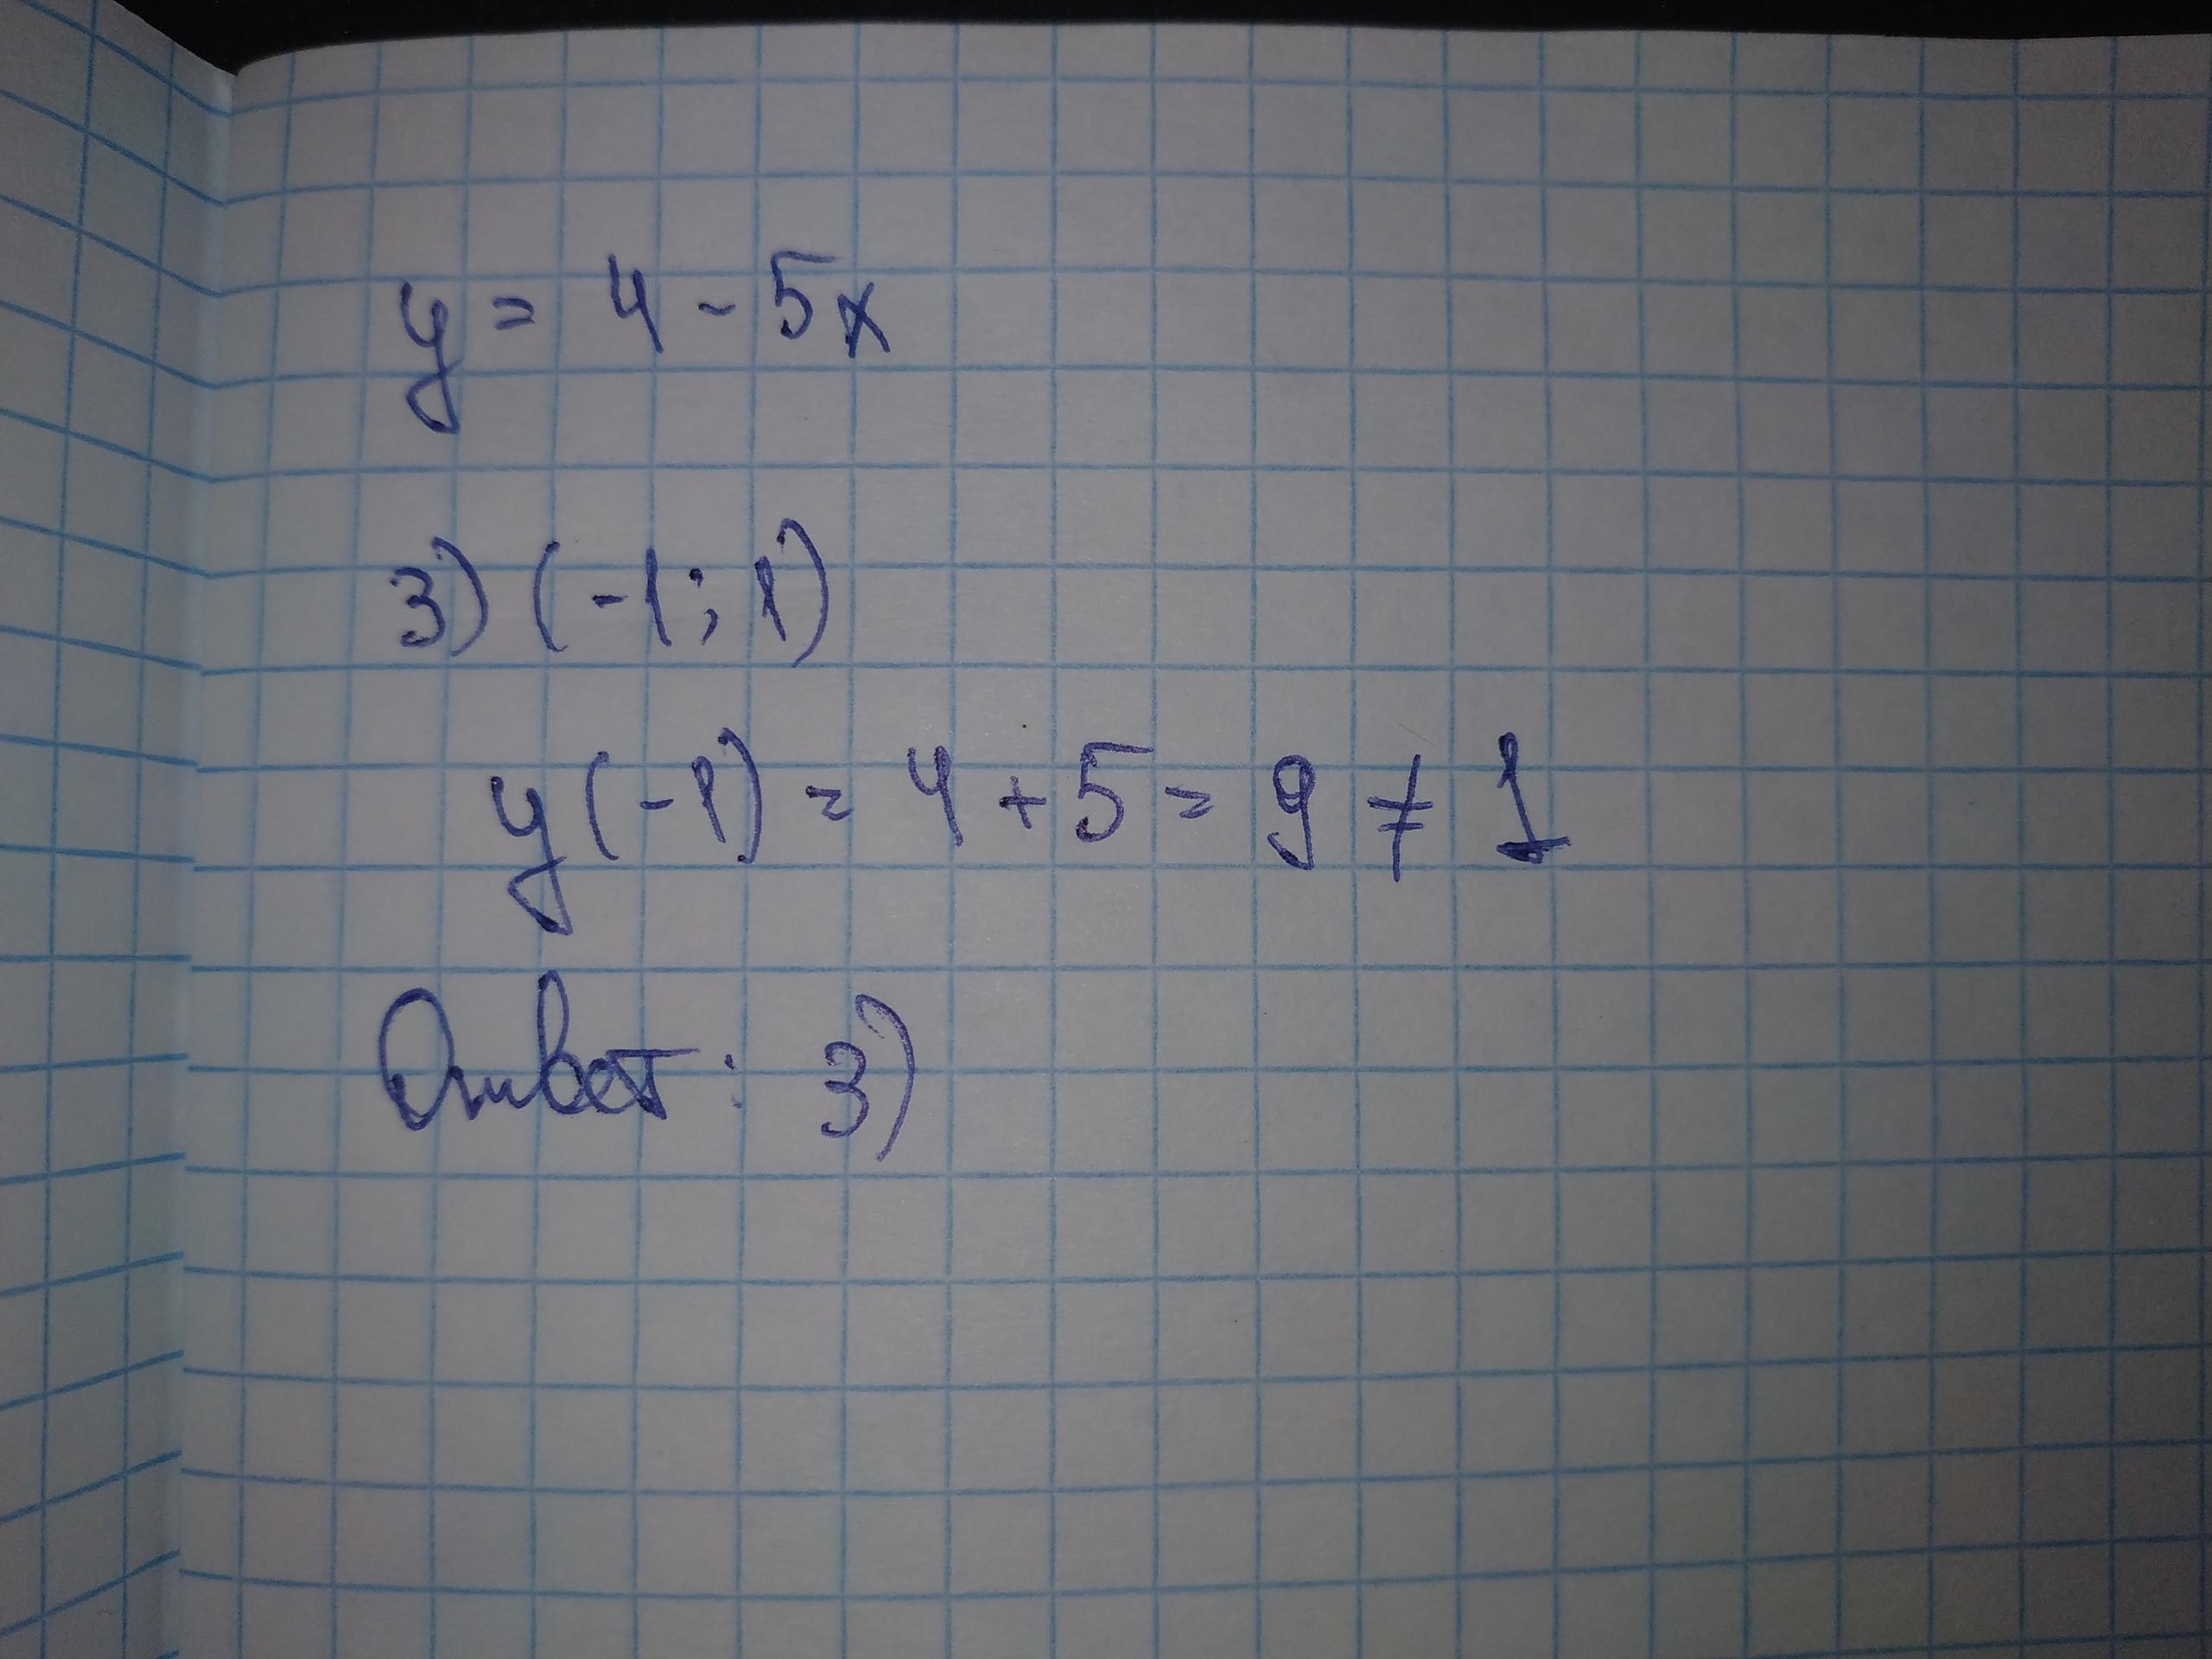 y = 4 - 5x
3) (-1; 1)
y(-1) = 4 + 5 = 9 ≠ 1
Ответ: 3)